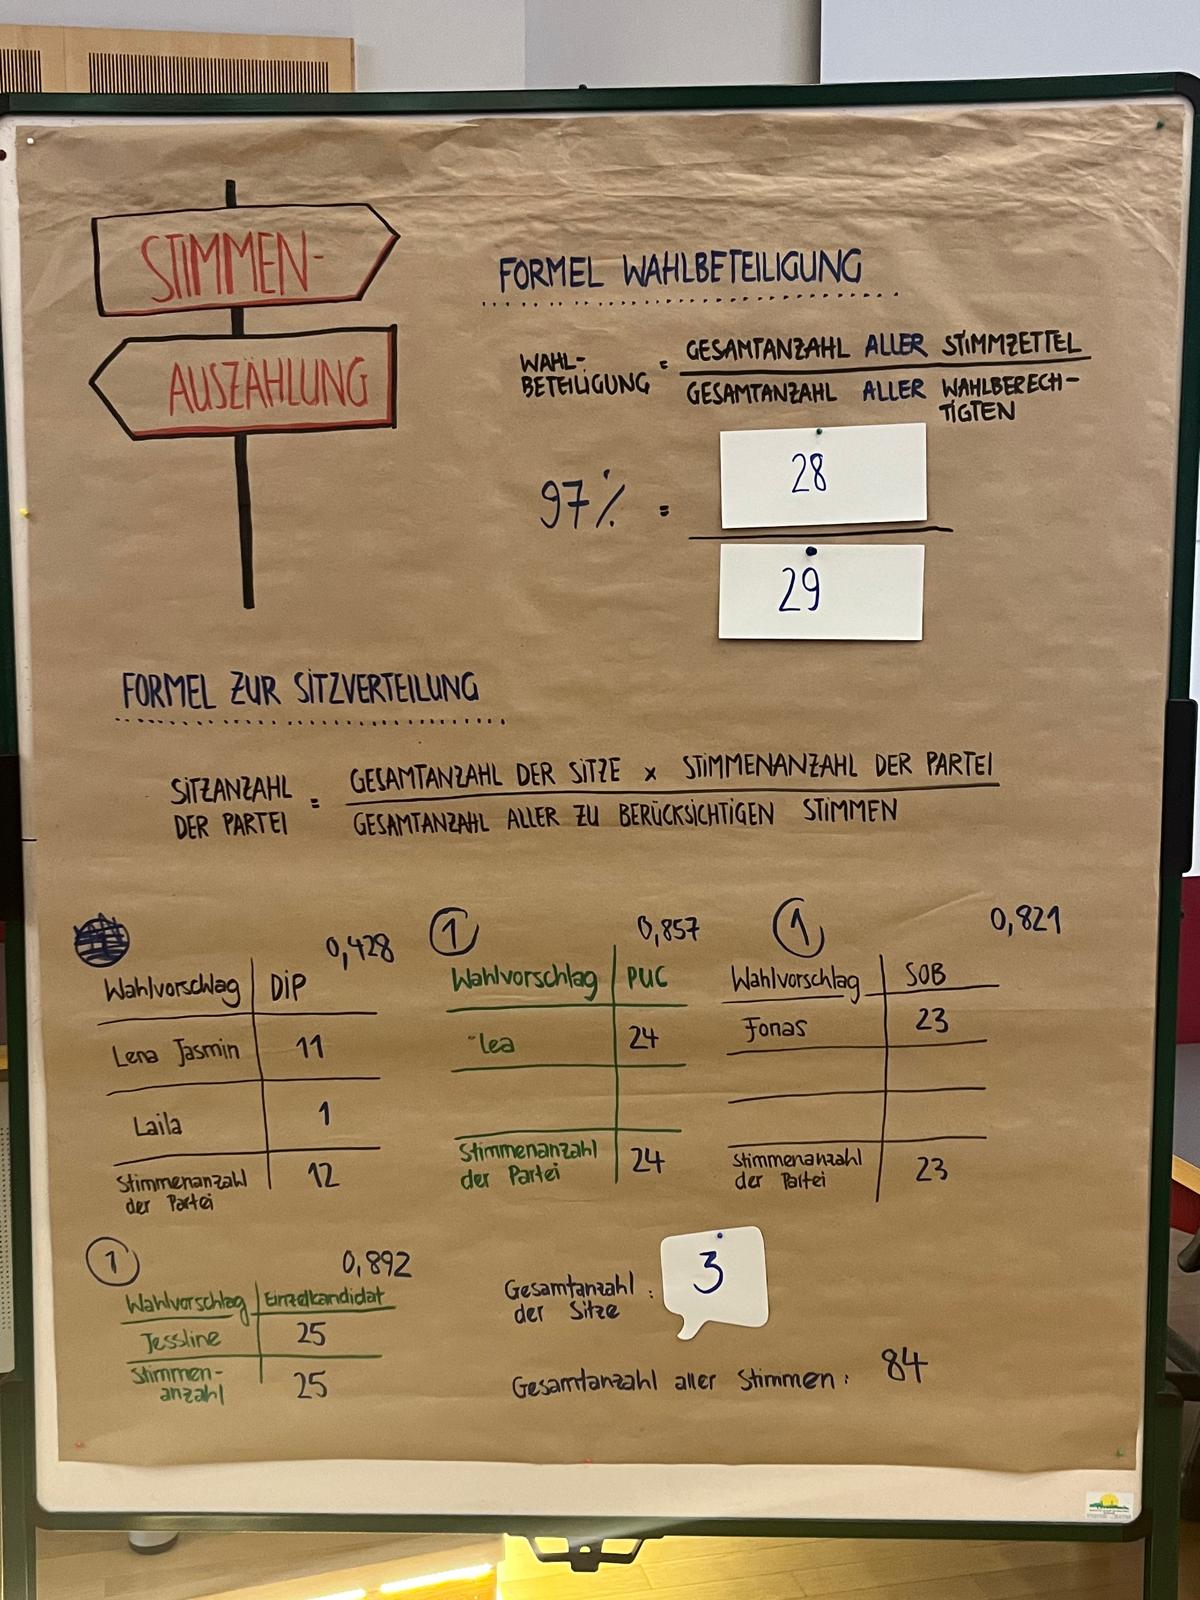 STIMMEN-
AUSZÄHLUNG
FORMEL WAHLBETEILIGUNG
WAHL-
BETEILIGUNG = GESAMTANZAHL ALLER STIMMZETTEL
GESAMTANZAHL ALLER WAHLBERECH-
TIGTEN
97% = 28
29
FORMEL ZUR SITZVERTEILUNG
SITZANZAHL
DER PARTEI = GESAMTANZAHL DER SITZE x STIMMENANZAHL DER PARTEI
GESAMTANZAHL ALLER ZU BERÜCKSICHTIGEN STIMMEN
0,428
Wahlvorschlag DIP
Lena Jasmin 11
Laila 1
Stimmenanzahl
der Partei 12
1 0,857
Wahlvorschlag PUC
Lea 24
Stimmenanzahl
der Partei 24
1 0,821
Wahlvorschlag SOB
Jonas 23
Stimmenanzahl
der Partei 23
1 0,892
Wahlvorschlag Einzelkandidat
Jessline 25
Stimmen-
anzahl 25
Gesamtanzahl
der Sitze : 3
Gesamtanzahl aller Stimmen: 84